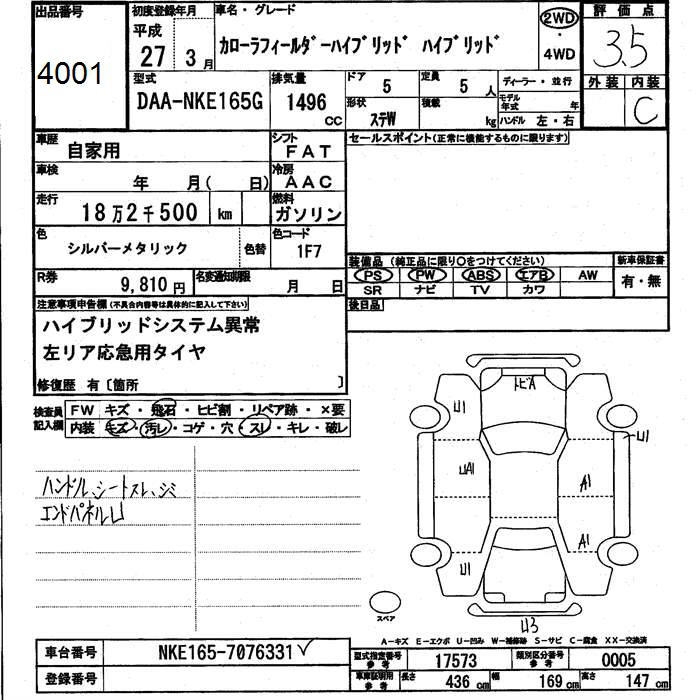 出品番号
4001
初度登録年月
平成
27 3月
車名・グレード
カローラフィールダーハイブリッド ハイブリッド
2WD
・
4WD
評価点
3.5
外装 内装
C
型式
DAA-NKE165G
排気量
1496
CC
ドア
5
定員
5人
形状
ステW
積載
kg
ディーラー・並行
モデル年式 年
ハンドル 左・右
車歴
自家用
シフト
FAT
車検
年 月( 日)
冷房
AAC
走行
18万2千500 km
燃料
ガソリン
色
シルバーメタリック
色替
色コード
1F7
R券
9,810円
名変通知期限
月 日
セールスポイント(正常に機能するものに限ります)
装備品 (純正品に限り○をつけてください)
PS PW ABS エアB AW
SR ナビ TV カワ
新車保証書
有・無
後日品
注意事項申告欄(不具合内容等は具体的に記入して下さい)
ハイブリッドシステム異常
左リア応急用タイヤ
修復歴 有〔箇所 〕
検査員記入欄
FW キズ・飛石・ヒビ割・リペア跡・×要
内装 キズ・汚レ・コゲ・穴・スレ・キレ・破レ
ハンドル、シートスレ、シミ
エンドパネルU
トビA
U1
U1
UA1
A1
A1
U1
U3
スペア
A-キズ E-エクボ U-凹み W-補修跡 S-サビ C-腐食 XX-交換済
車台番号
NKE165-7076331
登録番号
型式指定番号
参考
17573
類別区分番号
参考
0005
車庫証明用
参考
長さ 436cm
幅 169cm
高さ 147cm